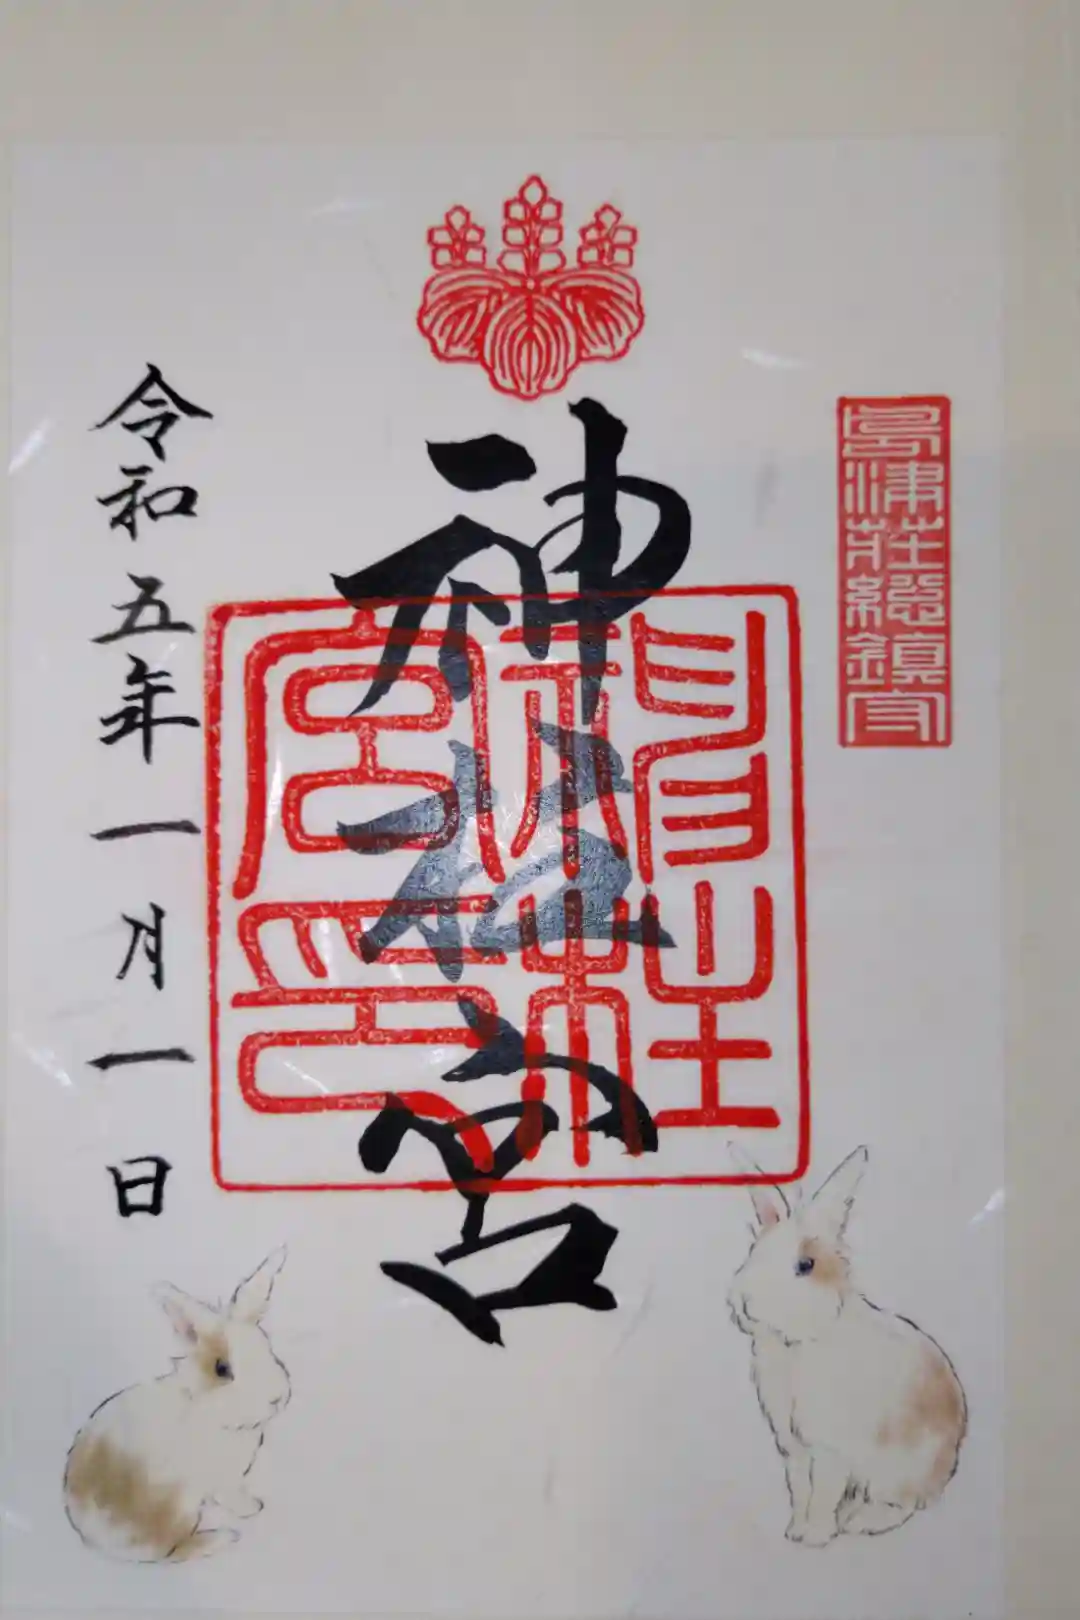 島津荘總鎮守
神柱宮
神柱
宮印
令和五年一月一日